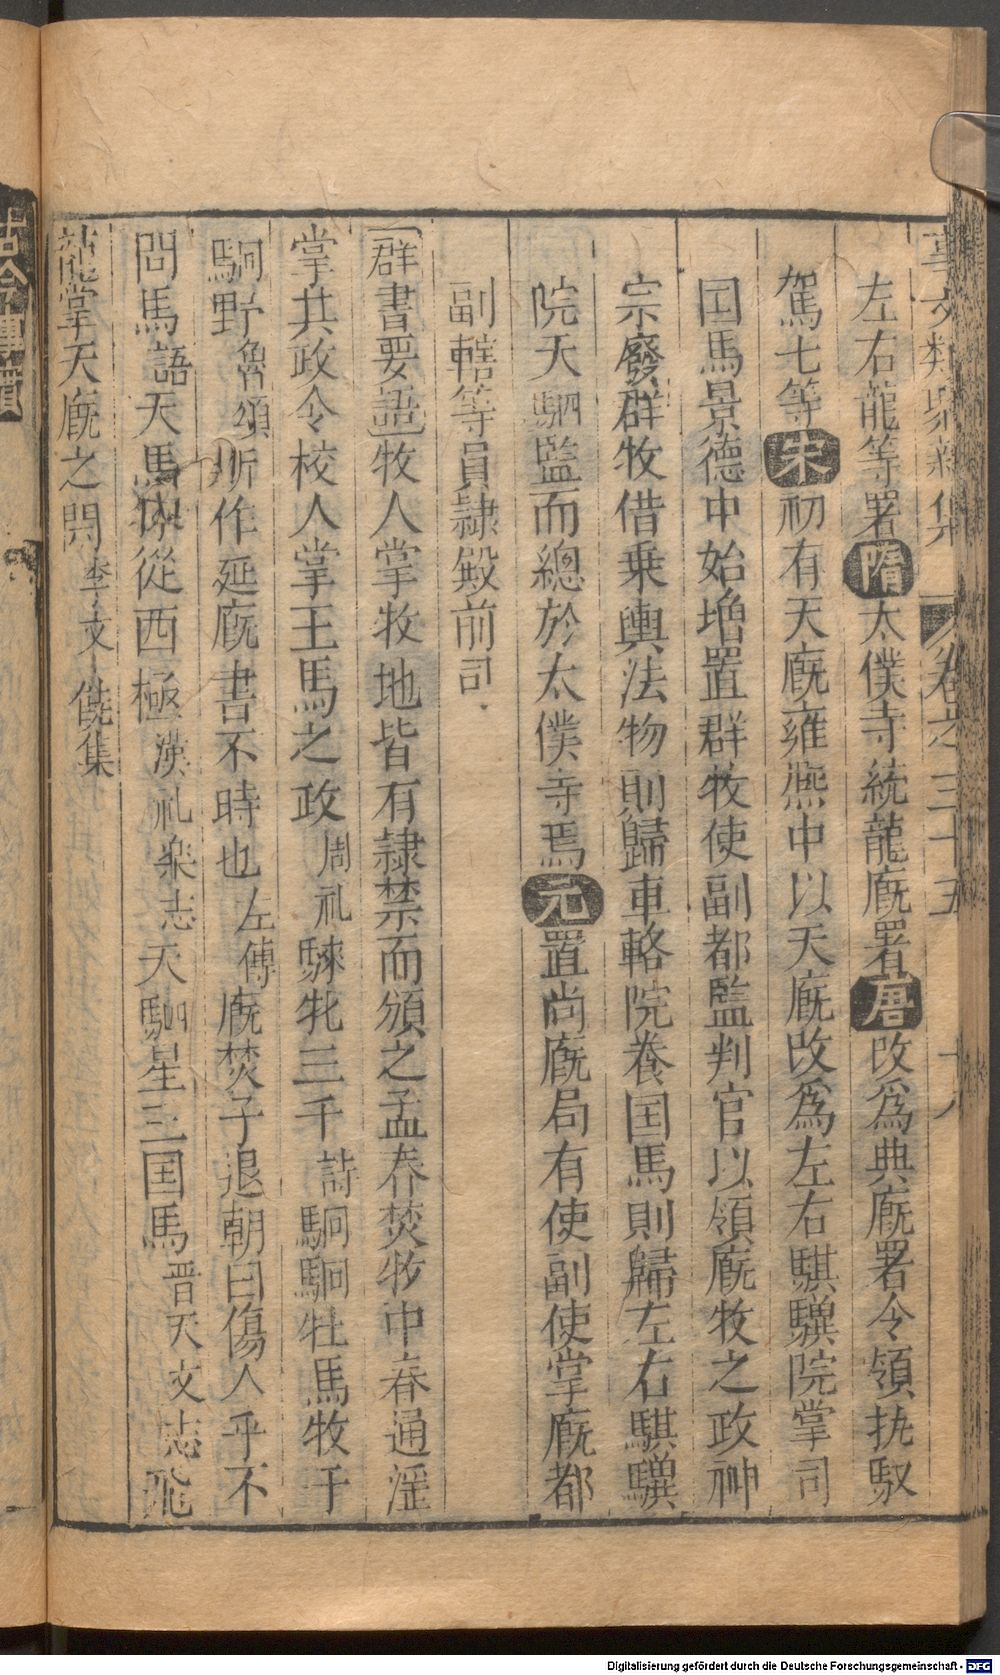 事文類聚新集 卷之三十五 十八
左右龍等署隋太僕寺統龍廐署唐改爲典廐署令領㧞馭
駕七等宋初有天廐雍熈中以天廐改爲左右騏驥院掌司
国馬景德中始増置群牧使副都監判官以領廐牧之政神
宗廢群牧借乗輿法物則歸車輅院養国馬則歸左右騏驥
院天駟監而總於太僕寺焉元置尚廐局有使副使掌廐都
副轄等員隷殿前司
群書要語牧人掌牧地皆有隷禁而頒之孟春焚牧中春通滛
掌共政令校人掌王馬之政周礼騋牝三千詩駉駉牡馬牧于
駉野魯頌斯作延廐書不時也左傳廐焚子退朝曰傷人乎不
問馬語天馬徠從西極漢礼楽志天駟星三国馬晋天文志飛
龍掌天廐之閑李文饒集
古今
Digitalisierung gefördert durch die Deutsche Forschungsgemeinschaft - DFG